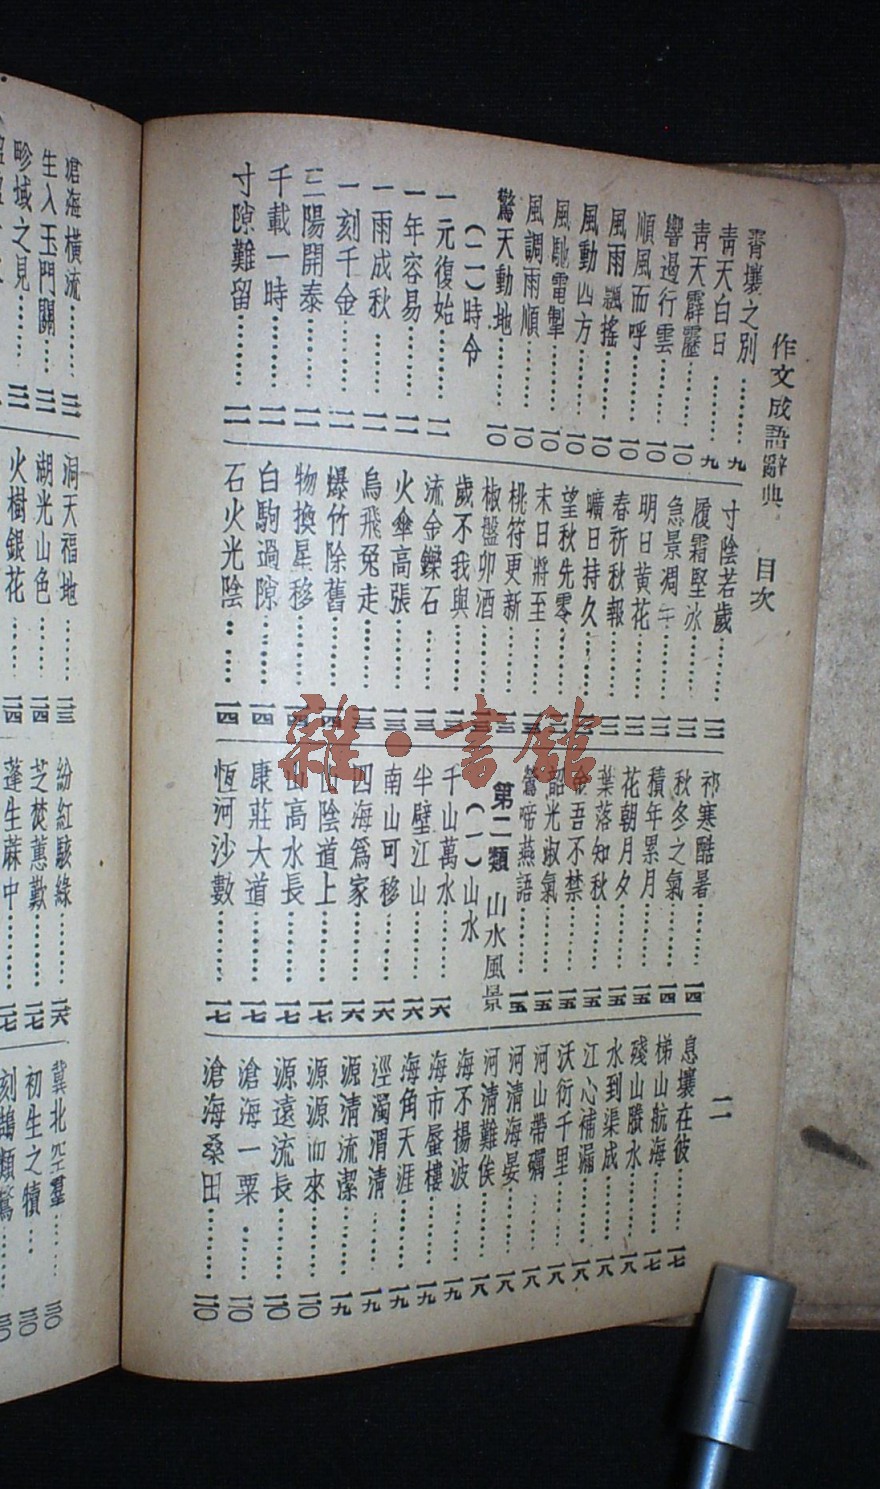 作文成語辭典 目次
二
霄壤之別………九
青天白日………九
青天霹靂………九
響遏行雲………一〇
順風而呼………一〇
風雨飄搖………一〇
風動四方………一〇
風馳電掣………一〇
風調雨順………一〇
驚天動地………一〇
（二）時令
一元復始………一一
一年容易………一一
一雨成秋………一一
一刻千金………一一
三陽開泰………一一
千載一時………一一
寸隙難留………一一
寸陰若歲………
履霜堅冰………
急景凋年………
明日黃花………
春祈秋報………
曠日持久………
望秋先零………
末日將至………
桃符更新………
椒盤卯酒………
歲不我與………一三
流金鑠石………一三
火傘高張………一三
烏飛兔走………一三
爆竹除舊………一四
物換星移………一四
白駒過隙………一四
石火光陰………一四
祁寒酷暑………一四
秋冬之氣………一四
積年累月………一五
花朝月夕………一五
葉落知秋………一五
金吾不禁………一五
韶光淑氣………一五
鶯啼燕語………一五
第二類 山水風景
（一）山水
千山萬水………一六
半壁江山………一六
南山可移………一六
四海爲家………一六
山陰道上………一七
山高水長………一七
康莊大道………一七
恆河沙數………一七
息壤在彼………一七
梯山航海………一七
殘山賸水………一八
水到渠成………一八
江心補漏………一八
沃衍千里………一八
河山帶礪………一八
河清海晏………一八
河清難俟………一八
海不揚波………一九
海市蜃樓………一九
海角天涯………一九
涇濁渭清………一九
源清流潔………一九
源源而來………二〇
源遠流長………二〇
滄海一粟………二〇
滄海桑田………二〇
滄海橫流………
生入玉門關………
畛域之見………
洞天福地………二三
湖光山色………二四
火樹銀花………二四
紛紅駭綠………二六
芝焚蕙歎………二七
蓬生蔴中………二七
冀北空羣………三〇
初生之犢………三〇
刻鵠類鶩………三〇
雜·書館